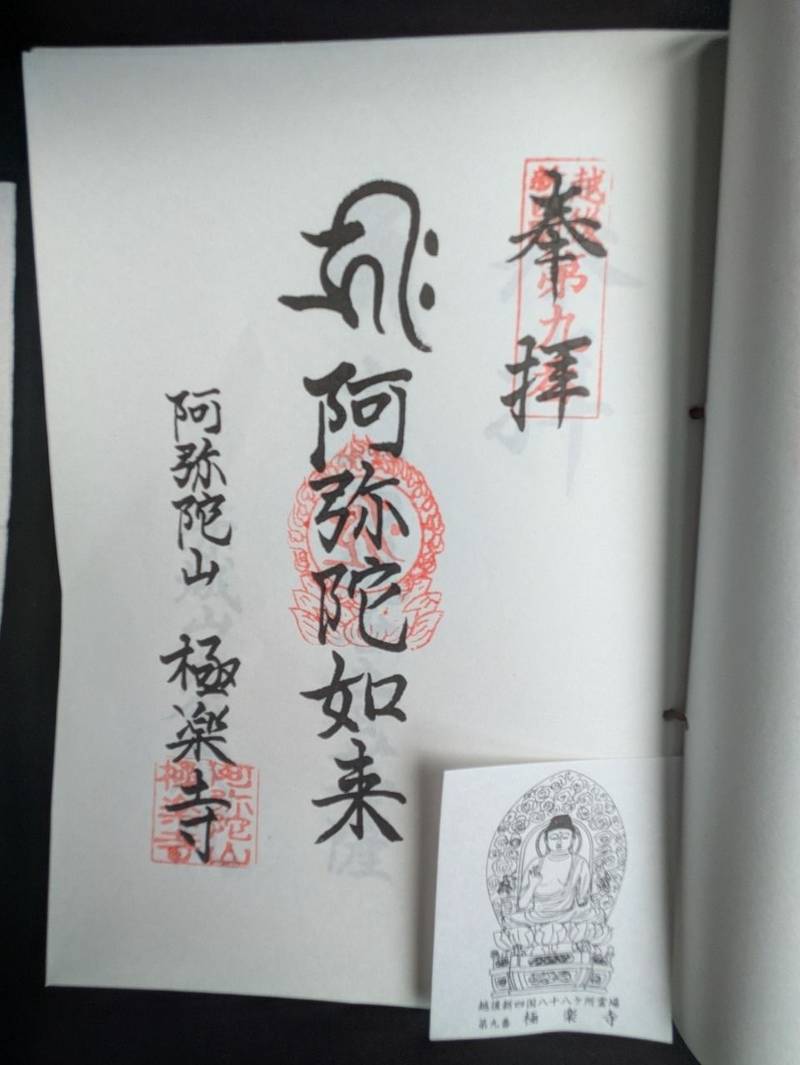 奉拝
越後
第九
𑖮𑖿𑖨𑖱𑖾
阿弥陀如来
阿弥陀山 極楽寺
阿弥陀山
極楽寺
越後新四国八十八ケ所霊場
第九番 極楽寺